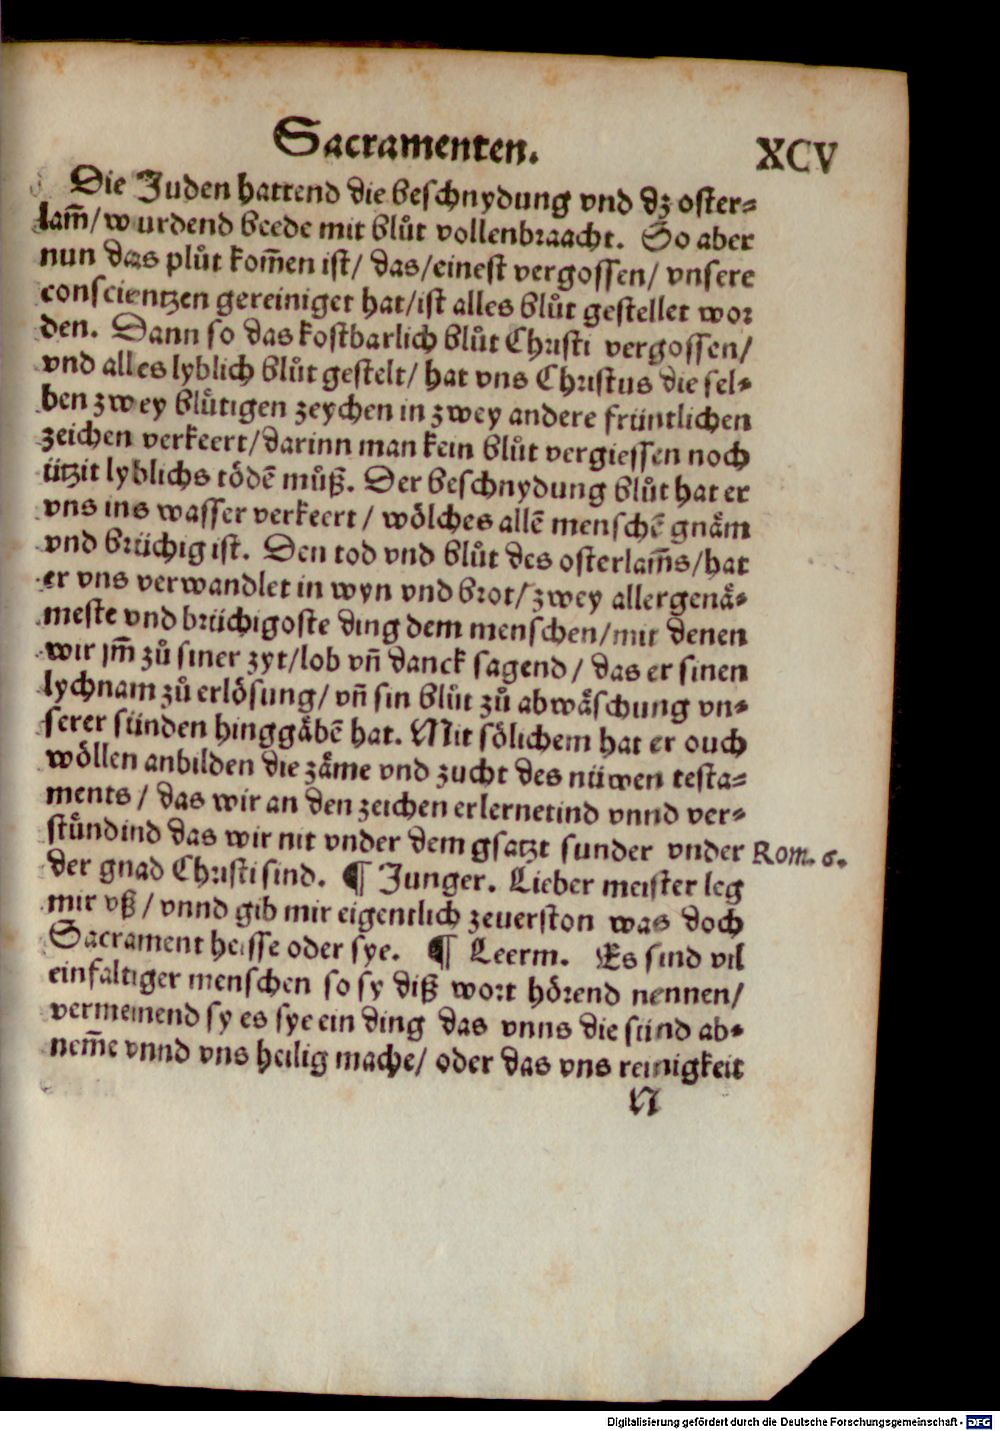 Sacramenten. XCV
Die Juden hattend die beschnydung vnd dz oster⸗
lam̃/ wurdend beede mit blůt vollenbraacht. So aber
nun das plůt kom̃en ist/ das/ einest vergossen/ vnsere
conscientzen gereiniget hat/ ist alles blůt gestellet wor
den. Dann so das kostbarlich blůt Christi vergossen/
vnd alles lyblich blůt gestelt/ hat vns Christus die sel⸗
ben zwey blůtigen zeychen in zwey andere früntlichen
zeichen verkeert/ darinn man kein blůt vergiessen noch
ützit lyblichs tödẽ můß. Der beschnydung blůt hat er
vns ins wasser verkeert / wölches allẽ menschẽ gnäm
vnd brüchig ist. Den tod vnd blůt des osterlam̃s/ hat
er vns verwandlet in wyn vnd brot/ zwey allergenä⸗
meste vnd brüchigoste ding dem menschen/ mit denen
wir jm̃ zů siner zyt/ lob vñ danck sagend / das er sinen
lychnam zů erlösung/ vñ sin blůt zů abwäschung vn⸗
serer sünden hinggäbẽ hat. Mit sölichem hat er ouch
wöllen anbilden die zäme vnd zucht des nüwen testa⸗
ments / das wir an den zeichen erlernetind vnnd ver⸗
stündind das wir nit vnder dem gsatzt sunder vnder Rom. 6.
der gnad Christi sind. ¶ Junger. Lieber meister leg
mir vß / vnnd gib mir eigentlich zeuerston was doch
Sacrament heisse oder sye. ¶ Leerm. Es sind vil
einfaltiger menschen so sy diß wort hörend nennen/
vermeinend sy es sye ein ding das vnns die sünd ab⸗
nem̃e vnnd vns heilig mache/ oder das vns reinigkeit
N
Digitalisierung gefördert durch die Deutsche Forschungsgemeinschaft - DFG